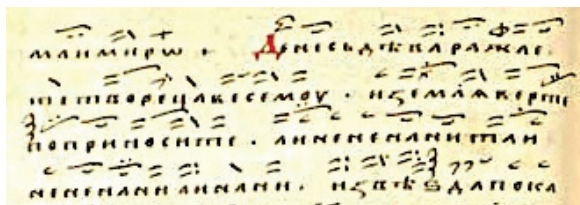 млимирѡ + Денесьдѣваражае
тетворецавесемоу . иземлѧверте
поприносите . аненененанитаи
нененанианани . извѣѕдапока